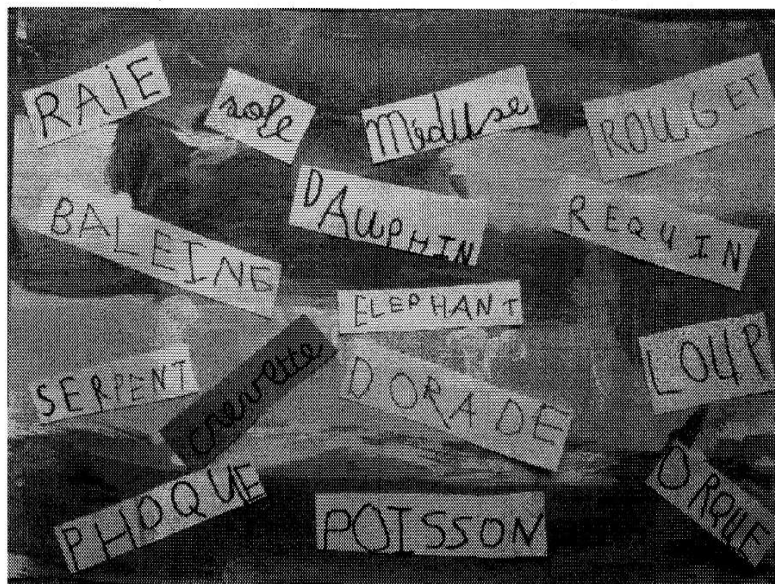 RAIE
sole
Méduse
ROUGET
BALEINE
DAUPHIN
REQUIN
ELEPHANT
SERPENT
crevette
DORADE
LOUP
PHOQUE
POISSON
ORQUE